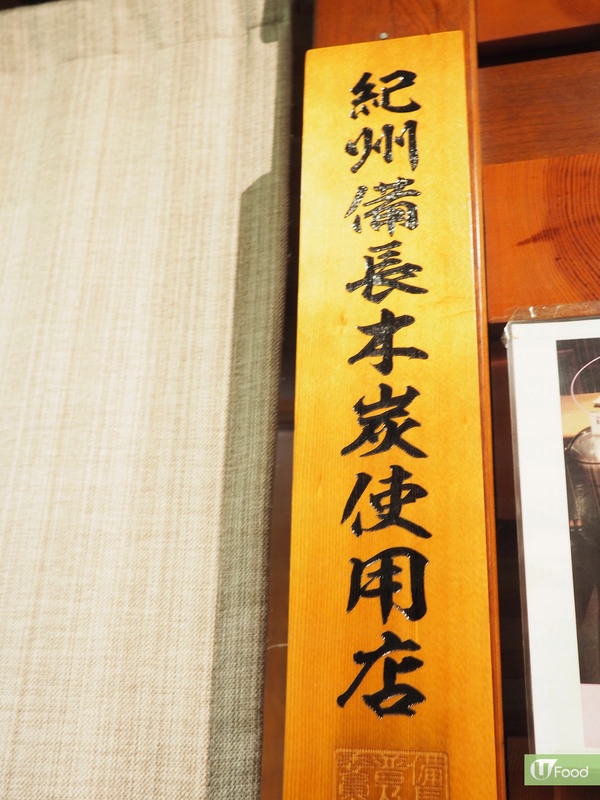 紀州備長木炭使用店
U Food